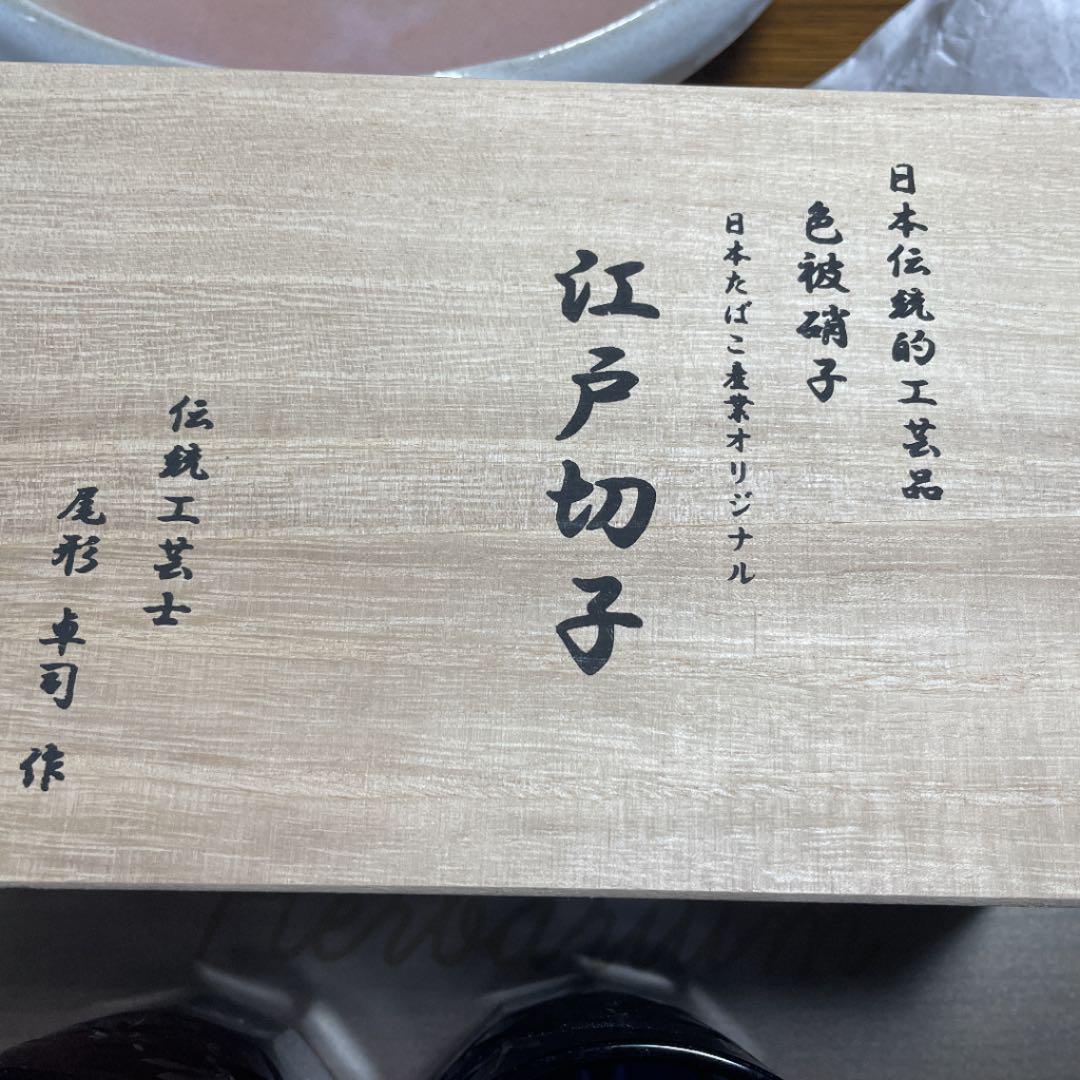 日本伝統的工芸品
色被硝子
日本たばこ産業オリジナル
江戸切子
伝統工芸士
尾形 卓司 作
Herbarium